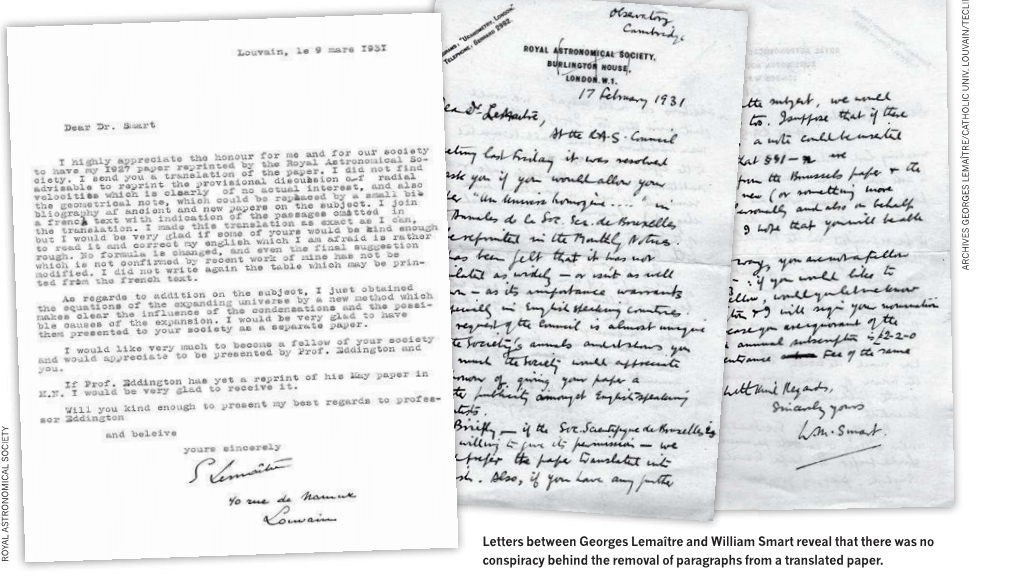 Louvain, le 9 mars 1931
Dear Dr. Smart
I highly appreciate the honour for me and for our society
to have my 1927 paper reprinted by the Royal Astronomical So-
ciety. I send you a translation of the paper. I did not find
advisable to reprint the provisional discussion of radial
velocities which is clearly of no actual interest, and also
the geometrical note, which could be replaced by a small bib
liography of ancient and new papers on the subject. I join
a french text with indication of the passages omitted in
the translation. I made this translation as exact as I can,
but I would be very glad if some of yours would be kind enough
to read it and correct my english which I am afraid is rather
rough. No formula is changed, and even the final suggestion
which is not confirmed by recent work of mine has not be
modified. I did not write again the table which may be prin-
ted from the french text.
As regards to addition on the subject, I just obtained
the equations of the expanding universe by a new method which
makes clear the influence of the condensations and the possi-
ble causes of the expansion. I would be very glad to have
them presented to your society as a separate paper.
I would like very much to become a fellow of your society
and would appreciate to be presented by Prof. Eddington and
you.
If Prof. Eddington has yet a reprint of his May paper in
M.N. I would be very glad to receive it.
Will you kind enough to present my best regards to profes-
sor Eddington
and beleive
yours sincerely
G Lemaître
40 rue de Namur
Louvain
Observatory
Cambridge
TELEPHONE, GERRARD 2992.
ROYAL ASTRONOMICAL SOCIETY,
BURLINGTON HOUSE,
LONDON, W.1.
17 February 1931
Dr. Lemaître,
At the R.A.S. Council
last Friday it was resolved
ask you if you would allow your
"Un univers homogène...." in
Annales de la Soc. Sci. de Bruxelles
reprinted in the Monthly Notices.
has been felt that it has not
as widely — or isn't as well
— as its importance warrants
in English speaking countries
request of the Council is almost unique
the Society's annals and shows you
much the Society would appreciate
of giving your paper a
publicity amongst English speaking
Briefly — if the Soc. Scientifique de Bruxelles is
willing to give its permission — we
prefer the paper translated into
Also, if you have any further
the subject, we would
too. I suppose that if there
a note could be inserted
that §§1— we
from the Brussels paper & the
new (or something more
personally and also on behalf
I hope that you will be able
you are not a fellow
if you would like to
would you let me know
& I will sign your nomination
case you are ignorant of the
annual subscription is £2-2-0
entrance fee of the same
With kind Regards,
Sincerely yours
W.M. Smart.
ROYAL ASTRONOMICAL SOCIETY
ARCHIVES GEORGES LEMAÎTRE/CATHOLIC UNIV. LOUVAIN/
Letters between Georges Lemaître and William Smart reveal that there was no
conspiracy behind the removal of paragraphs from a translated paper.